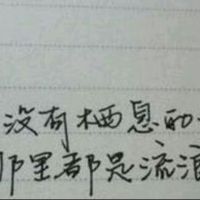 没有栖息的
那里都是流浪